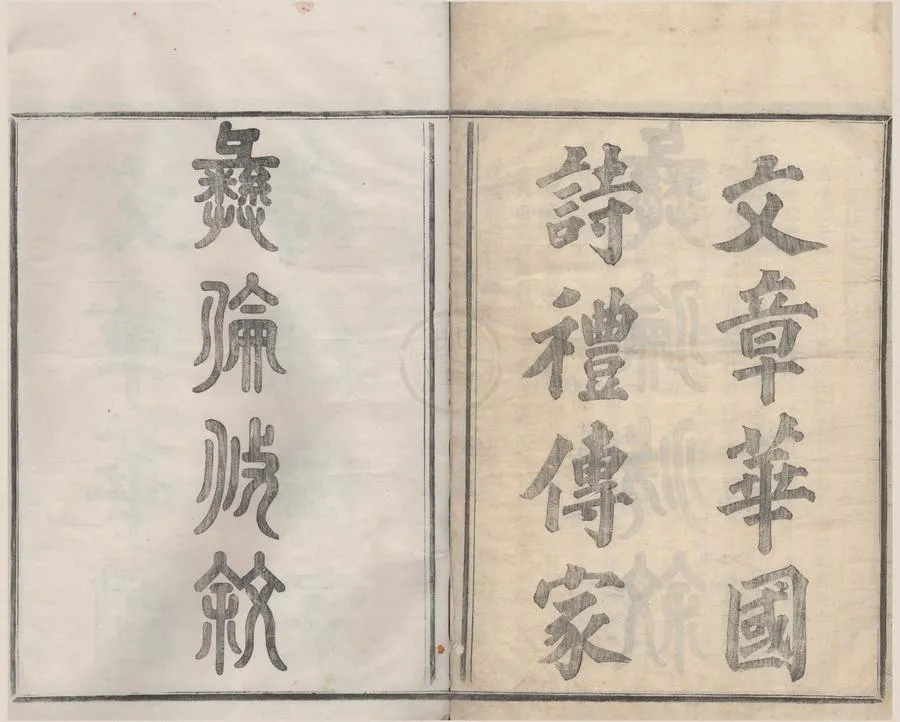 文章華國
詩禮傳家
彝倫攸敘